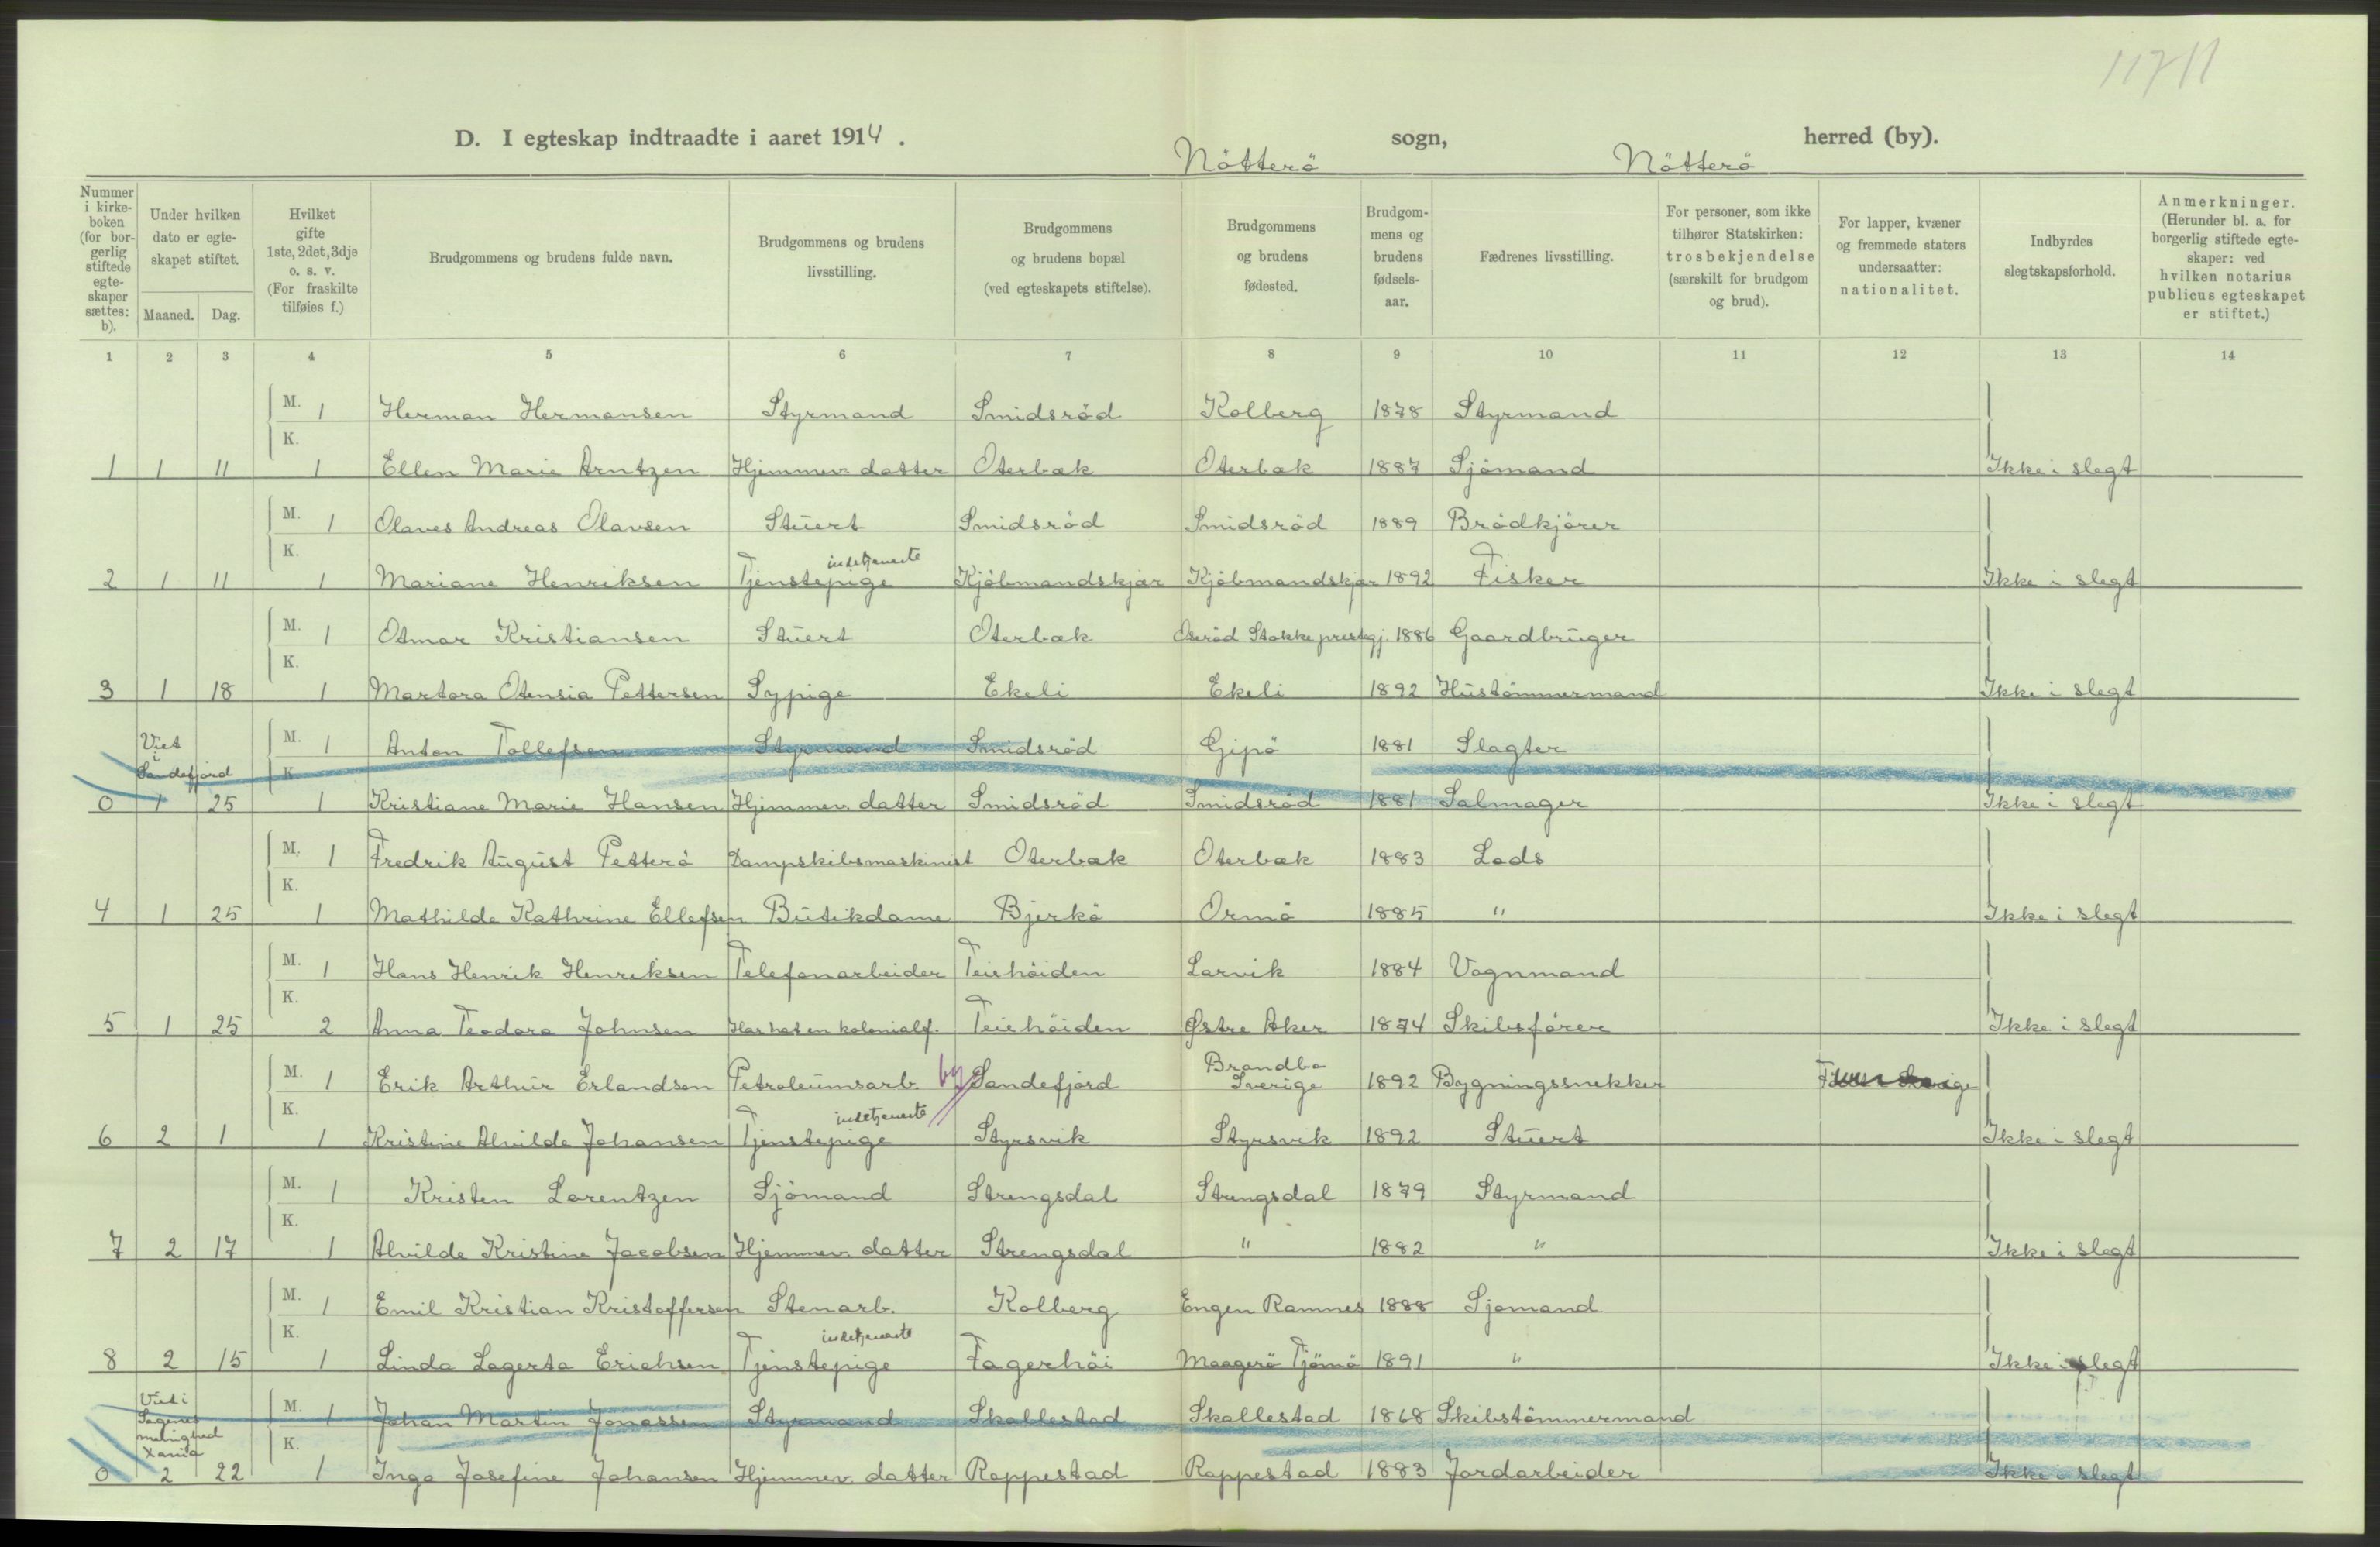 117/1
D. I egteskap indtraadte i aaret 1914. Nötterö sogn, Nötterö herred (by).
Nummer i kirke-boken (for bor-gerlig stiftede egte-skaper sættes: b).
Under hvilken dato er egte-skapet stiftet.
Maaned. Dag.
Hvilket gifte 1ste, 2det, 3dje o. s. v. (For fraskilte tilføies f.)
Brudgommens og brudens fulde navn.
Brudgommens og brudens livsstilling.
Brudgommens og brudens bopæl (ved egteskapets stiftelse).
Brudgommens og brudens fødested.
Brudgom-mens og brudens fødsels-aar.
Fædrenes livsstilling.
For personer, som ikke tilhører Statskirken: trosbekjendelse (særskilt for brudgom og brud).
For lapper, kvæner og fremmede staters undersaatter: nationalitet.
Indbyrdes slegtskapsforhold.
Anmerkninger. (Herunder bl. a. for borgerlig stiftede egte-skaper: ved hvilken notarius publicus egteskapet er stiftet.)
1 2 3 4 5 6 7 8 9 10 11 12 13 14
M. 1 Herman Hermansen Styrmand Smidsröd Kolberg 1878 Styrmand
K.
1 1 11 1 Ellen Marie Arntzen Hjemmev. datter Oterbæk Oterbæk 1887 Sjömand Ikke i slegt
M. 1 Olaves Andreas Olavsen Stuert Smidsröd Smidsröd 1889 Brödkjörer
K. indetjeneste
2 1 11 1 Mariane Henriksen Tjenstepige Kjöbmandskjær Kjöbmandskjær 1892 Fisker Ikke i slegt
M. 1 Otmar Kristiansen Stuert Oterbæk Oseröd Stokke prestegj. 1886 Gaardbruger
K.
3 1 18 1 Martora Otensia Pettersen Sypige Ekeli Ekeli 1892 Hustömmermand Ikke i slegt
Viet i Sandefjord
M. 1 Anton Tollefsen Styrmand Smidsröd Gipö 1881 Slagter
K.
0 1 25 1 Kristiane Marie Hansen Hjemmev. datter Smidsröd Smidsröd 1881 Salmager Ikke i slegt
M. 1 Fredrik August Petterö Dampskibsmaskinist Oterbæk Oterbæk 1883 Lods
K.
4 1 25 1 Mathilde Kathrine Ellefsen Butikdame Bjerkö Ormö 1885 " Ikke i slegt
M. 1 Hans Henrik Henriksen Telefonarbeider Teiehöiden Larvik 1884 Vognmand
K.
5 1 25 2 Anna Teodora Johnsen Har hat en kolonialf. Teiehöiden Østre Aker 1874 Skibsförer Ikke i slegt
M. 1 Erik Arthur Erlandson Petroleumsarb. by Sandefjord Brandbo Sverige 1892 Bygningssnekker
K. indetjeneste
6 2 1 1 Kristine Alvilde Johansen Tjenstepige Styrsvik Styrsvik 1892 Stuert Ikke i slegt
M. 1 Kristen Lorentzen Sjömand Strengsdal Strengsdal 1879 Styrmand
K.
7 2 17 1 Alvilde Kristine Jacobsen Hjemmev. datter Strengsdal " 1882 " Ikke i slegt
M. 1 Emil Kristian Kristoffersen Stenarb. Kolberg Engen Ramnes 1888 Sjomand
K. indetjeneste
8 2 15 1 Linda Lagerta Erichsen Tjenstepige Fagerhöi Maagerö Tjömö 1891 " Ikke i slegt
Viet i Sagenes menighed Xania
M. 1 Johan Martin Jonassen Styrmand Skallestad Skallestad 1868 Skibstömmermand
K.
0 2 22 1 Inga Josefine Johansen Hjemmev. datter Roppestad Roppestad 1883 Jordarbeider Ikke i slegt